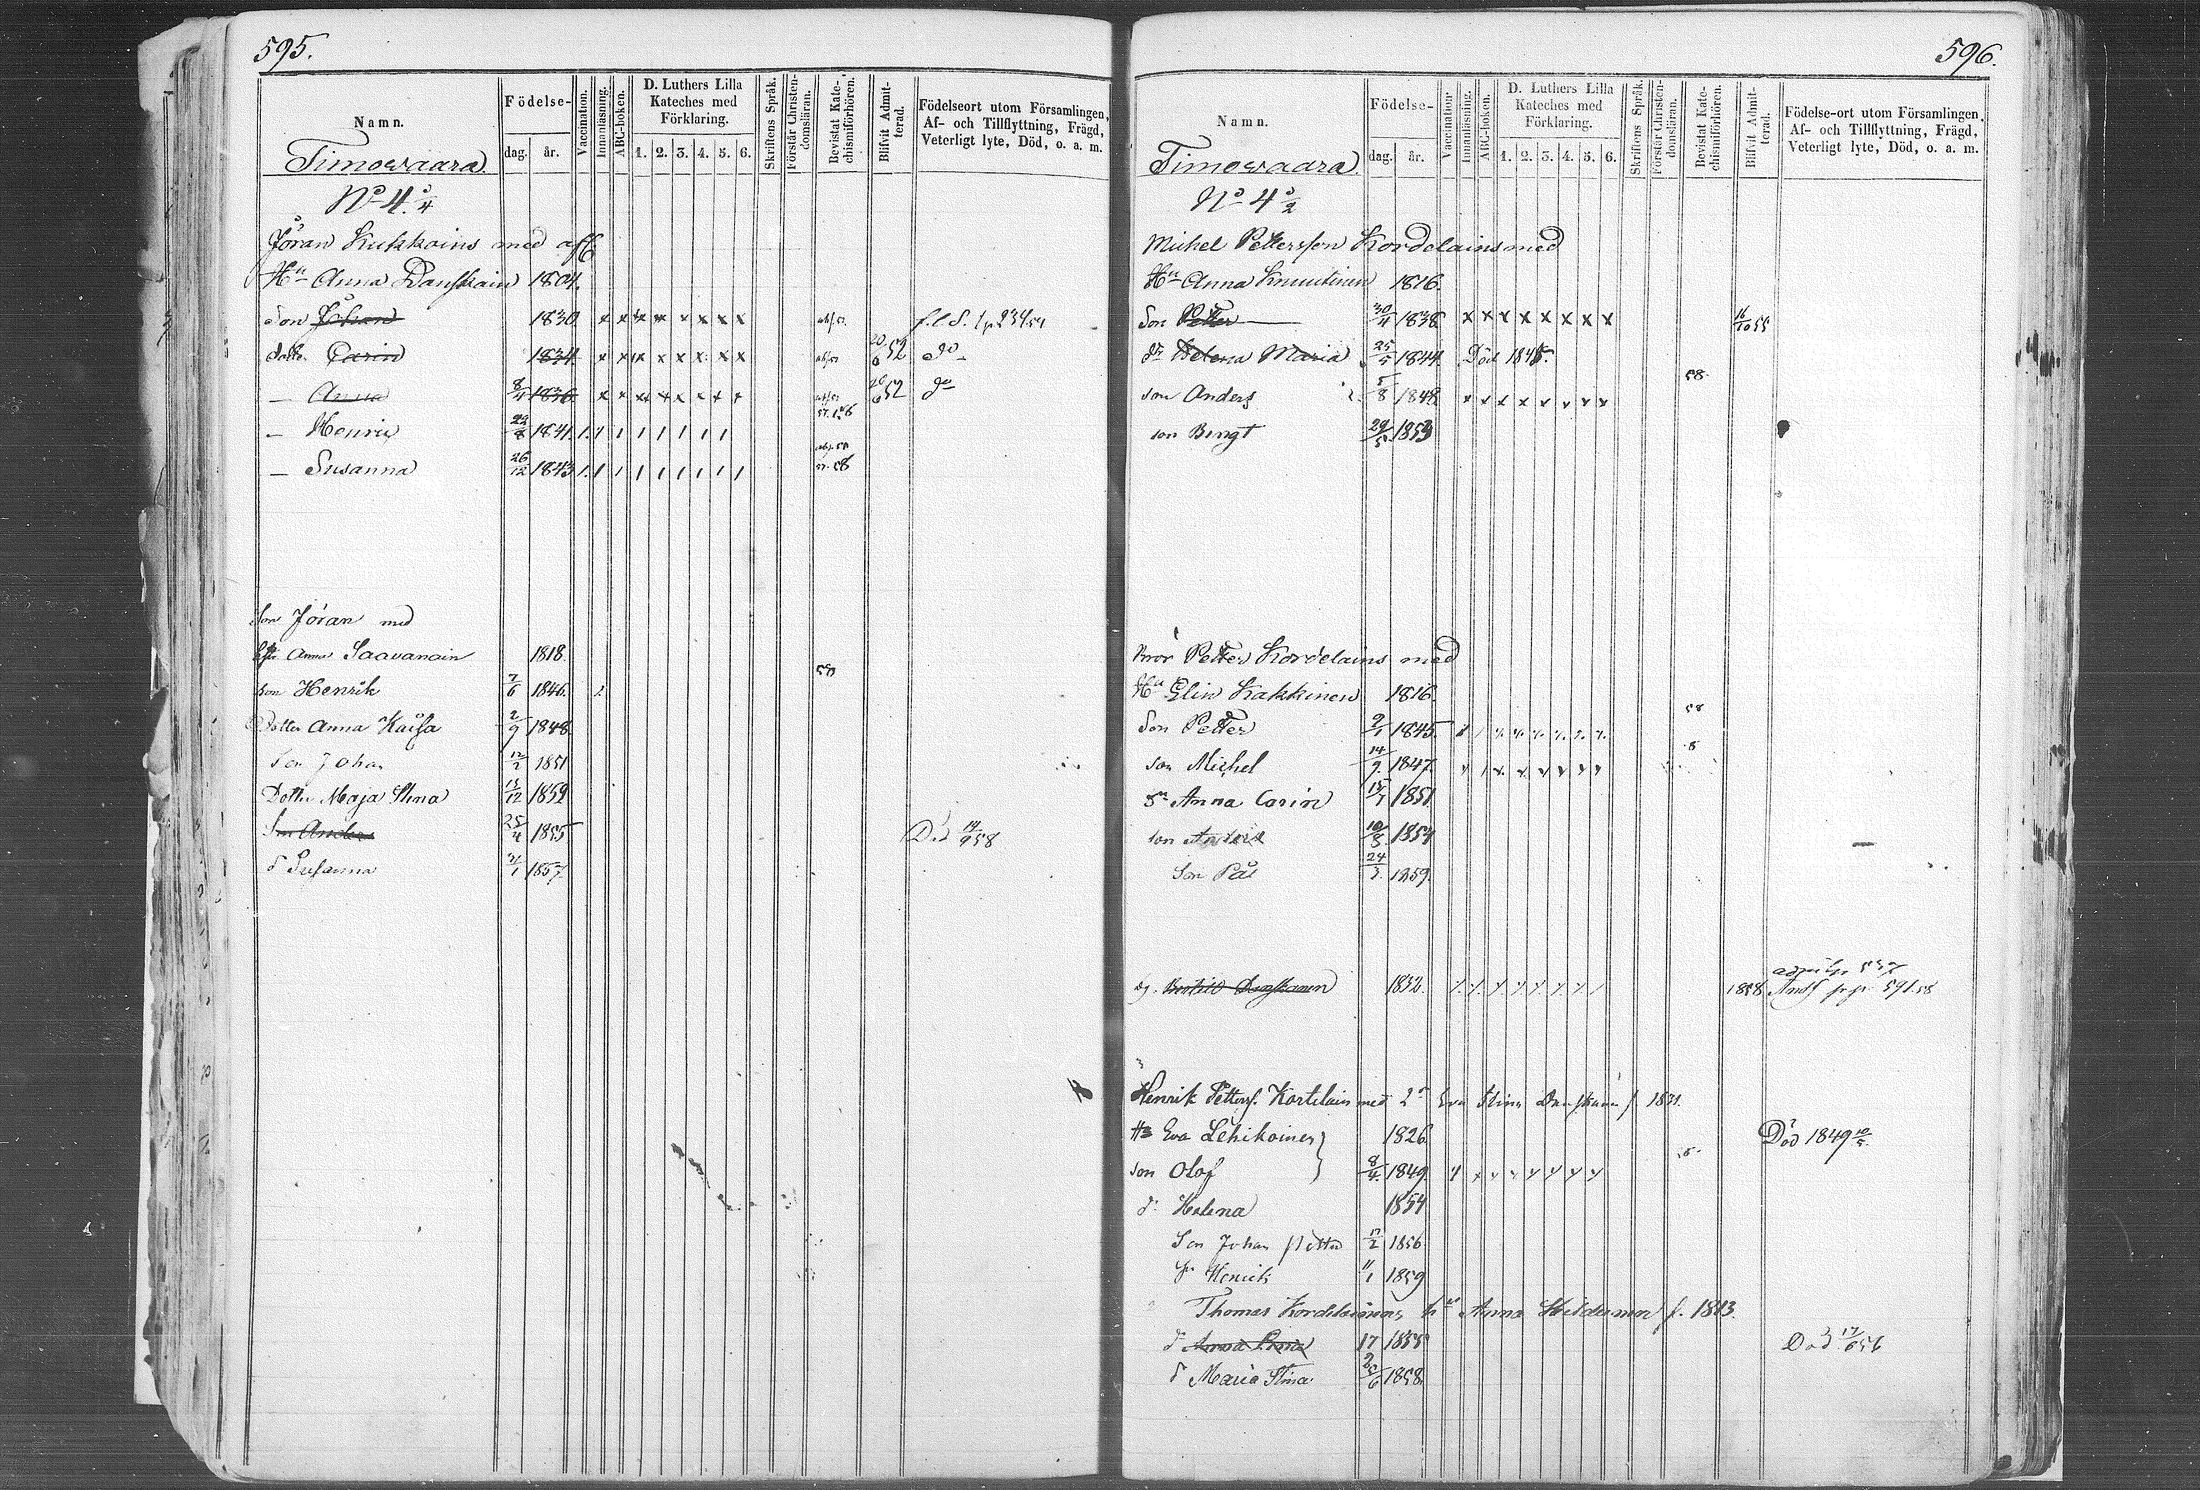 595.
Namn.
Födelse-
dag. år.
Vaccination.
Innanläsning.
ABC-boken.
D. Luthers Lilla
Kateches med
Förklaring.
1. 2. 3. 4. 5. 6.
Skriftens Språk.
Förstår Christen-
domsläran.
Bevistat Kate-
chismiförhören.
Blifvit Admit-
terad.
Födelseort utom Församlingen,
Af- och Tillflyttning, Frägd,
Veterligt lyte, Död, o. a. m.
Timowaara
No 4. 3/4
Jöran Kukkoins med
Hu Anna Danskain 1804.
Son Johan 1830. x x x x x x x x
dott. Carin 1834. x x x x x x x x 20/6 52 do
— Anna 8/4 1836 x x x x x x x x 20/6 52 do
— Henric 1841.
— Susanna 26/12 1843
Son Jöran med
Anna Saavanain 1818.
son Henrik 7/6 1846.
Dotter Anna Kaisa 2/9 1848.
Son Johan 12/2 1851
Dotter Maja Stina 13/12 1852
Son Anders 25/4 1855 Död 14/9 58
d Susanna 1857
596.
Namn.
Födelse-
dag. år.
Vaccination
Innanläsning.
ABC-boken.
D. Luthers Lilla
Kateches med
Förklaring.
1. 2. 3. 4. 5. 6.
Skriftens Språk.
Förstår Christen-
domsläran.
Bevistat Kate-
chismiförhören.
Blifvit Admit-
terad.
Födelse-ort utom Församlingen,
Af- och Tillflyttning, Frägd,
Veterligt lyte, Död, o. a. m.
Timowaara
No 4 3/2
Michel Pettersson Kordelains med
Hu Anna Knuutinen 1816.
Son Petter 30/4 1838 x x x x x x x x 16/10 55
dr Helena Maria 25/5 1844. Död 1845.
son Anders 5/8 1848 x x x x x x x x 58
son Bengt 29/5 1853
Bror Petter Kordelains med
Hu Elin Kakkinen 1816.
Son Petter 2/1 1845. 58
son Michel 14/9 1847.
Dr Anna Carin 1851
son 10/8 1854
Son Pål 24/3 1859.
1832. 1858
Henrik Petterss. Kortelain med 2a Eva Stina Danskain f. 1831.
Eva Lehikoinen 1826. Död 1849 10/5.
son Olof 8/4 1849.
d. Helena 1854
Son Johan Petter 1856
Henrik 11/1 1859
Thomas hu Anna f. 1813.
d 17 1855 Död 17/6 56
d Maria Stina 1858